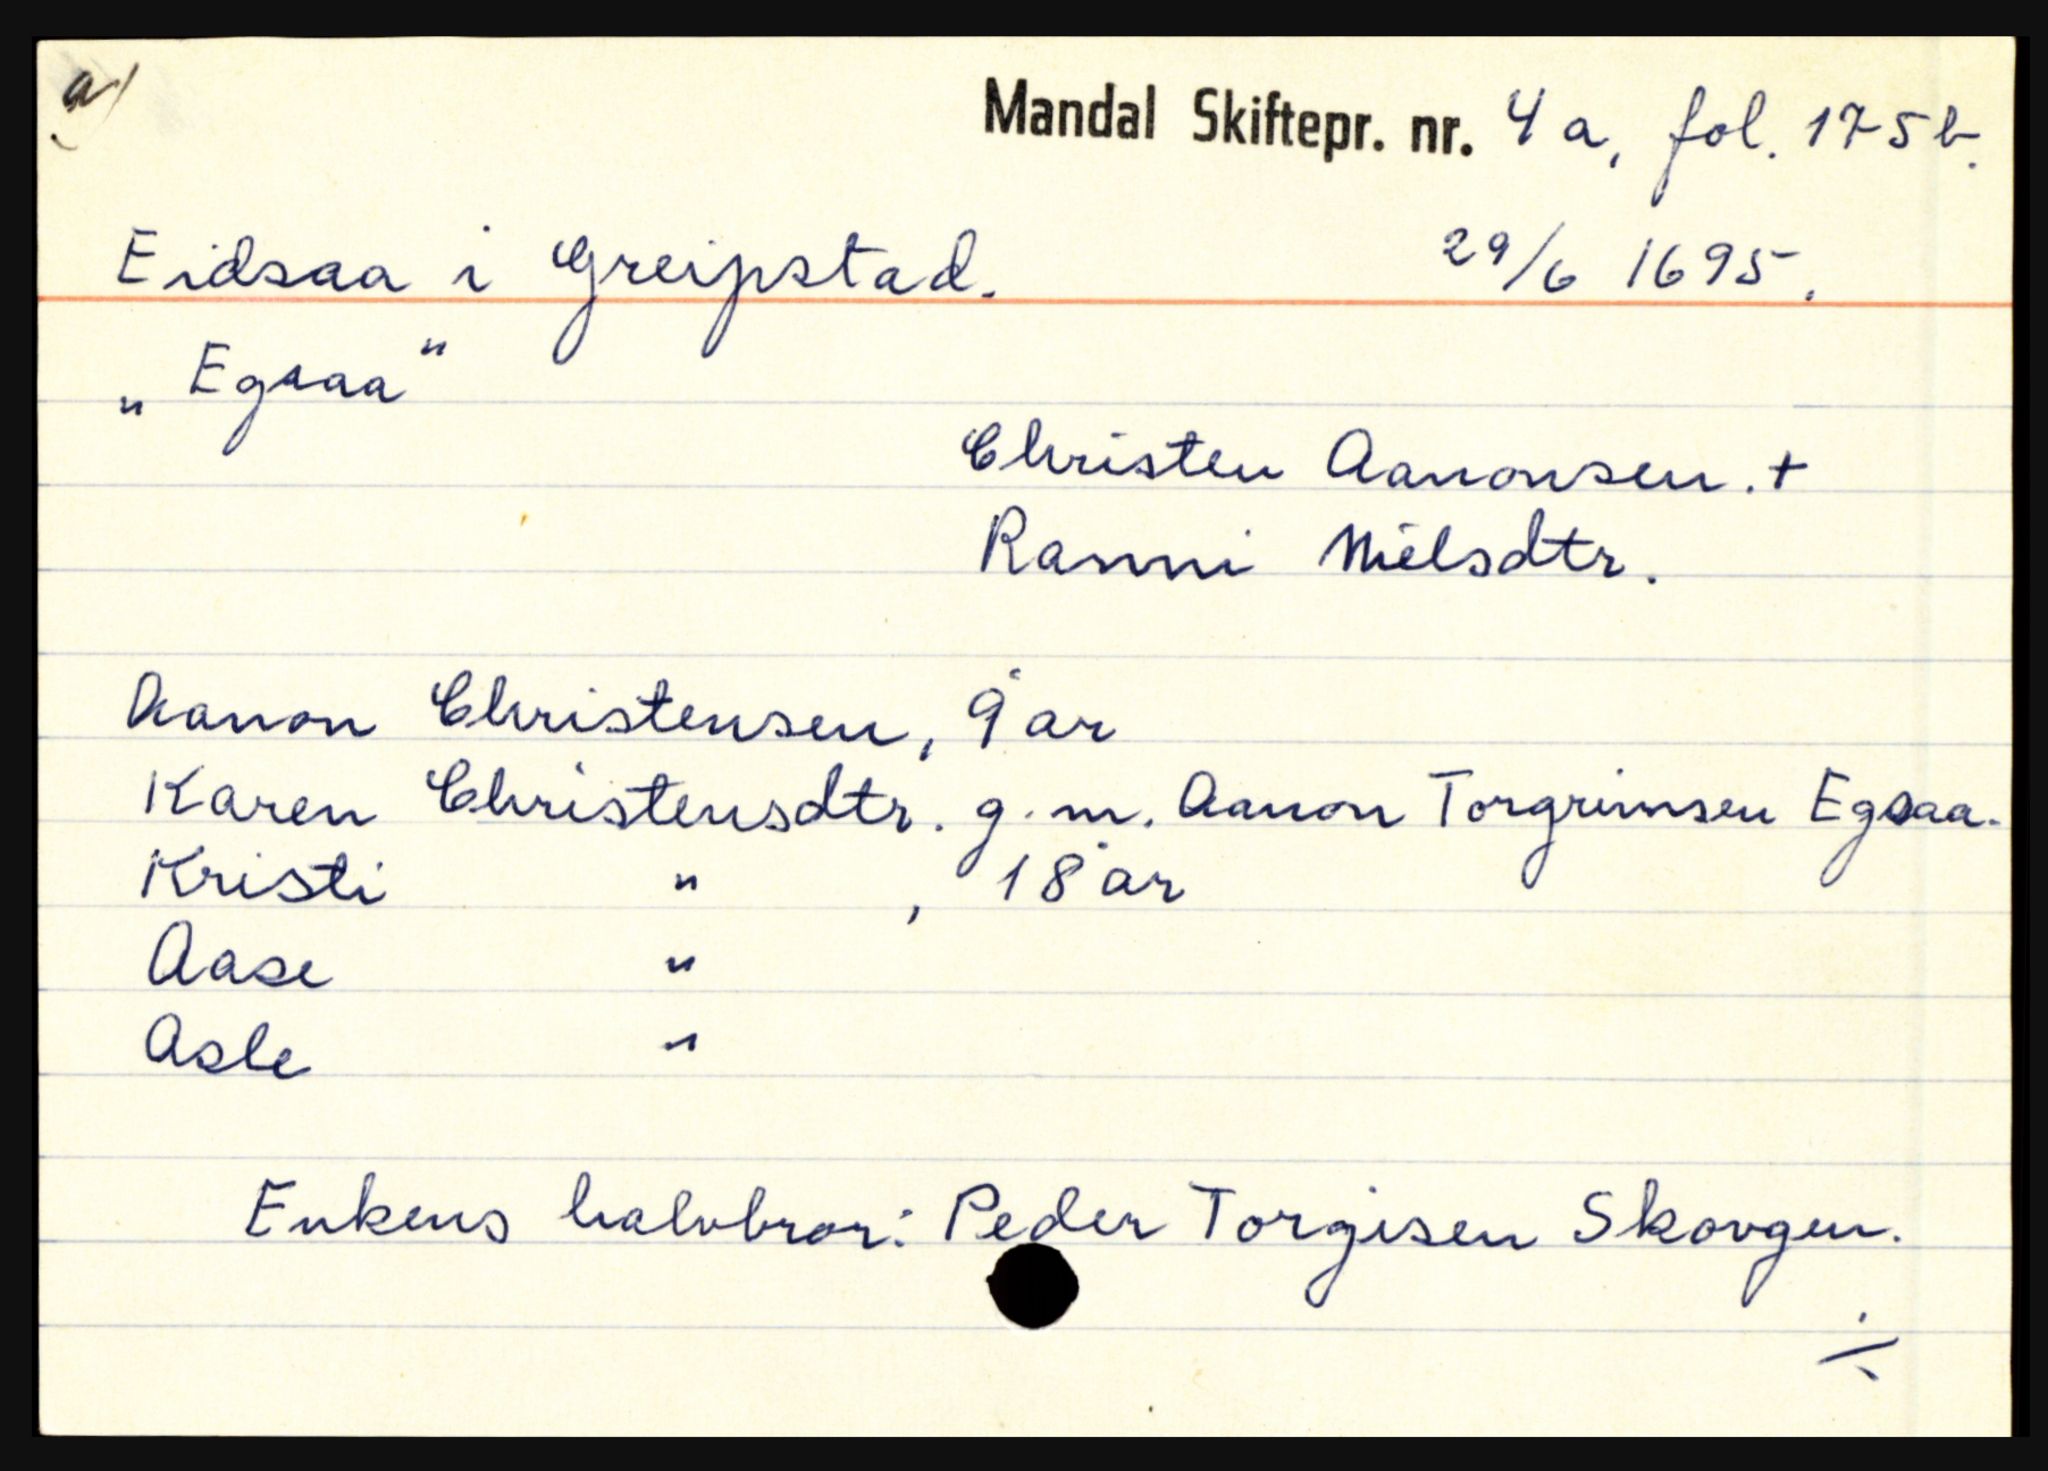 a)
Mandal Skiftepr. nr. 4a, fol. 175b.
Eidsaa i Greipstad. 29/6 1695.
„Egsaa"
Christen Aanonsen. +
Ranni Nielsdtr.
Aanon Christensen, 9 år
Karen Christensdtr. g.m. Aanon Torgrimsen Egsaa.
Kristi " , 18 år
Aase "
Asle "
Enkens halvbror: Peder Torgisen Skovgen.
÷